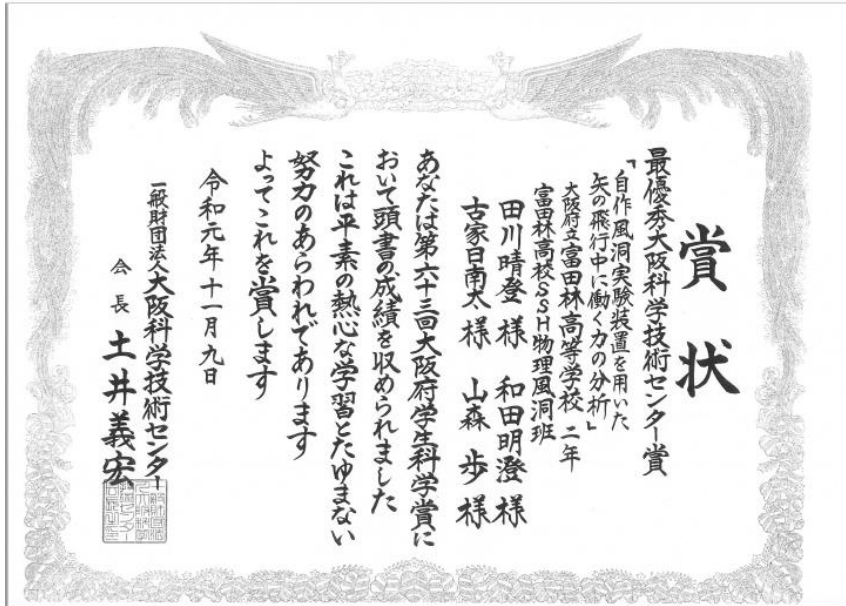 賞状
最優秀大阪科学技術センター賞
「自作風洞実験装置を用いた
矢の飛行中に働く力の分析」
大阪府立富田林高等学校 二年
富田林高校SSH物理風洞班
田川晴登 様 和田明澄 様
古家日南太 様 山森 歩 様
あなたは第六十三回大阪府学生科学賞に
おいて頭書の成績を収められました
これは平素の熱心な学習とたゆまない
努力のあらわれであります
よってこれを賞します
令和元年十一月九日
一般財団法人大阪科学技術センター
会長 土井義宏